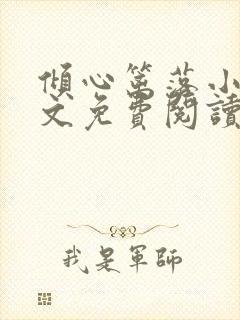 傾心篱落小
文免費閱讀
我是軍師